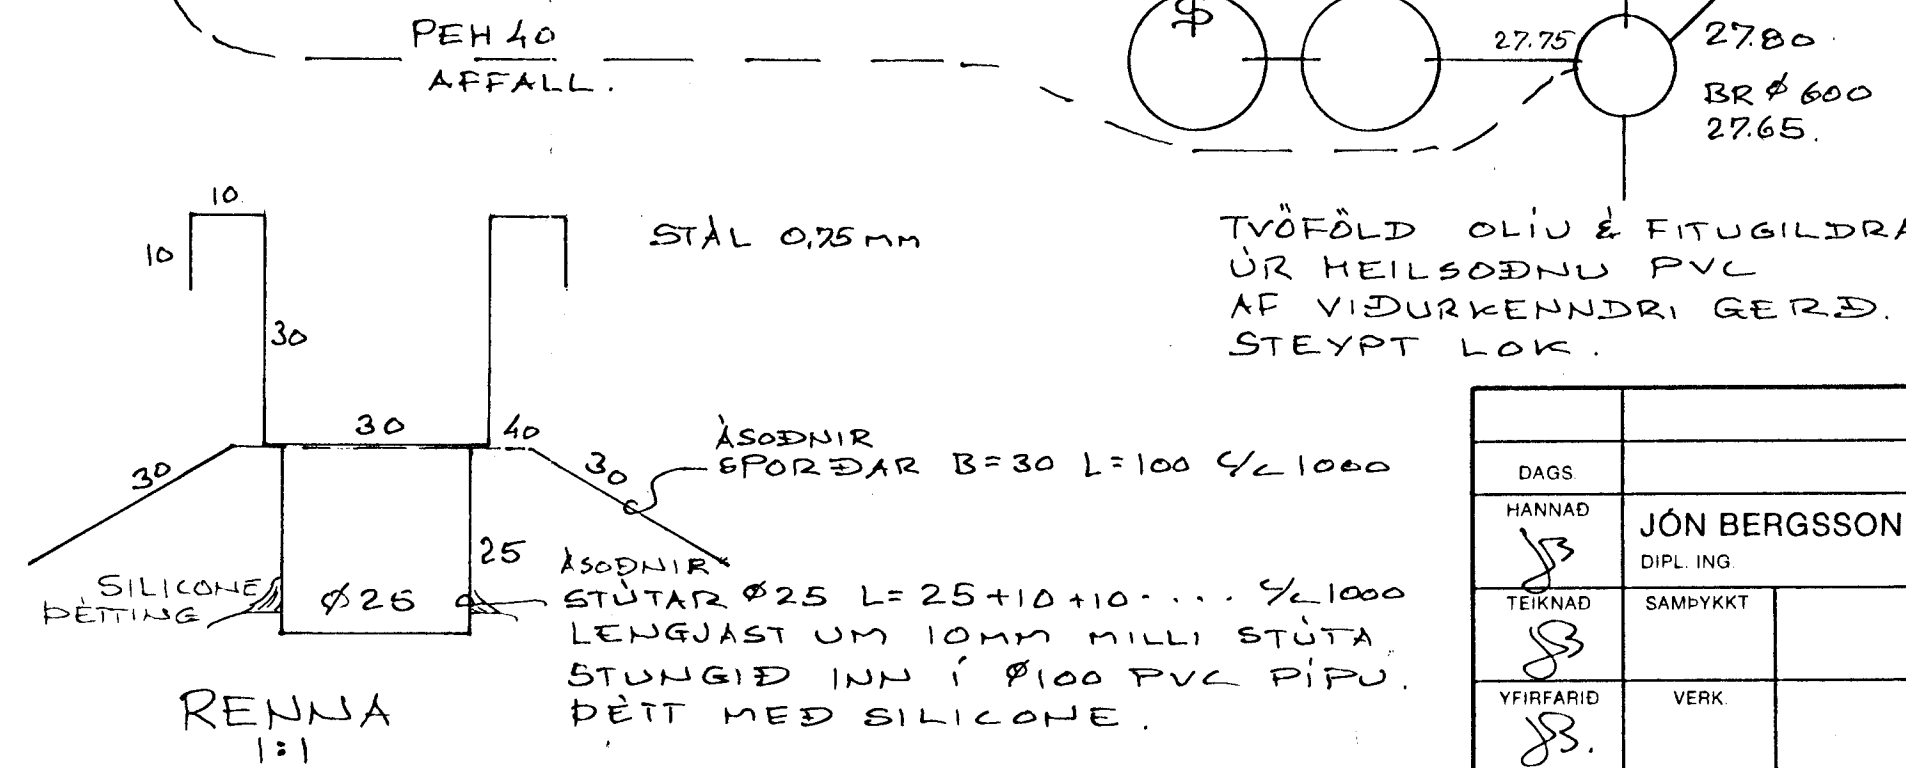 PEH 40
AFFALL.
$
27.75
27.80
BR ∅ 600
27.65.
10
10
30
30
40
30
30
25
∅ 25
STÁL 0,75 mm
TVÖFÖLD OLÍU & FITUGILDRA
ÚR HEILSOÐNU PVC
AF VIÐURKENNDRI GERÐ.
STEYPT LOK.
ÁSOÐNIR
SPORÐAR B=30 L=100 C/C 1000
SILICONE
ÞÉTTING
ÁSOÐNIR
STÚTAR ∅25 L= 25+10+10.... C/C 1000
LENGJAST UM 10MM MILLI STÚTA
STUNGIÐ INN Í ∅100 PVC PÍPU.
ÞÉTT MEÐ SILICONE.
RENNA
1:1
DAGS.
HANNAÐ
JB
JÓN BERGSSON
DIPL. ING.
TEIKNAÐ
JB
SAMÞYKKT
YFIRFARIÐ
JB.
VERK.